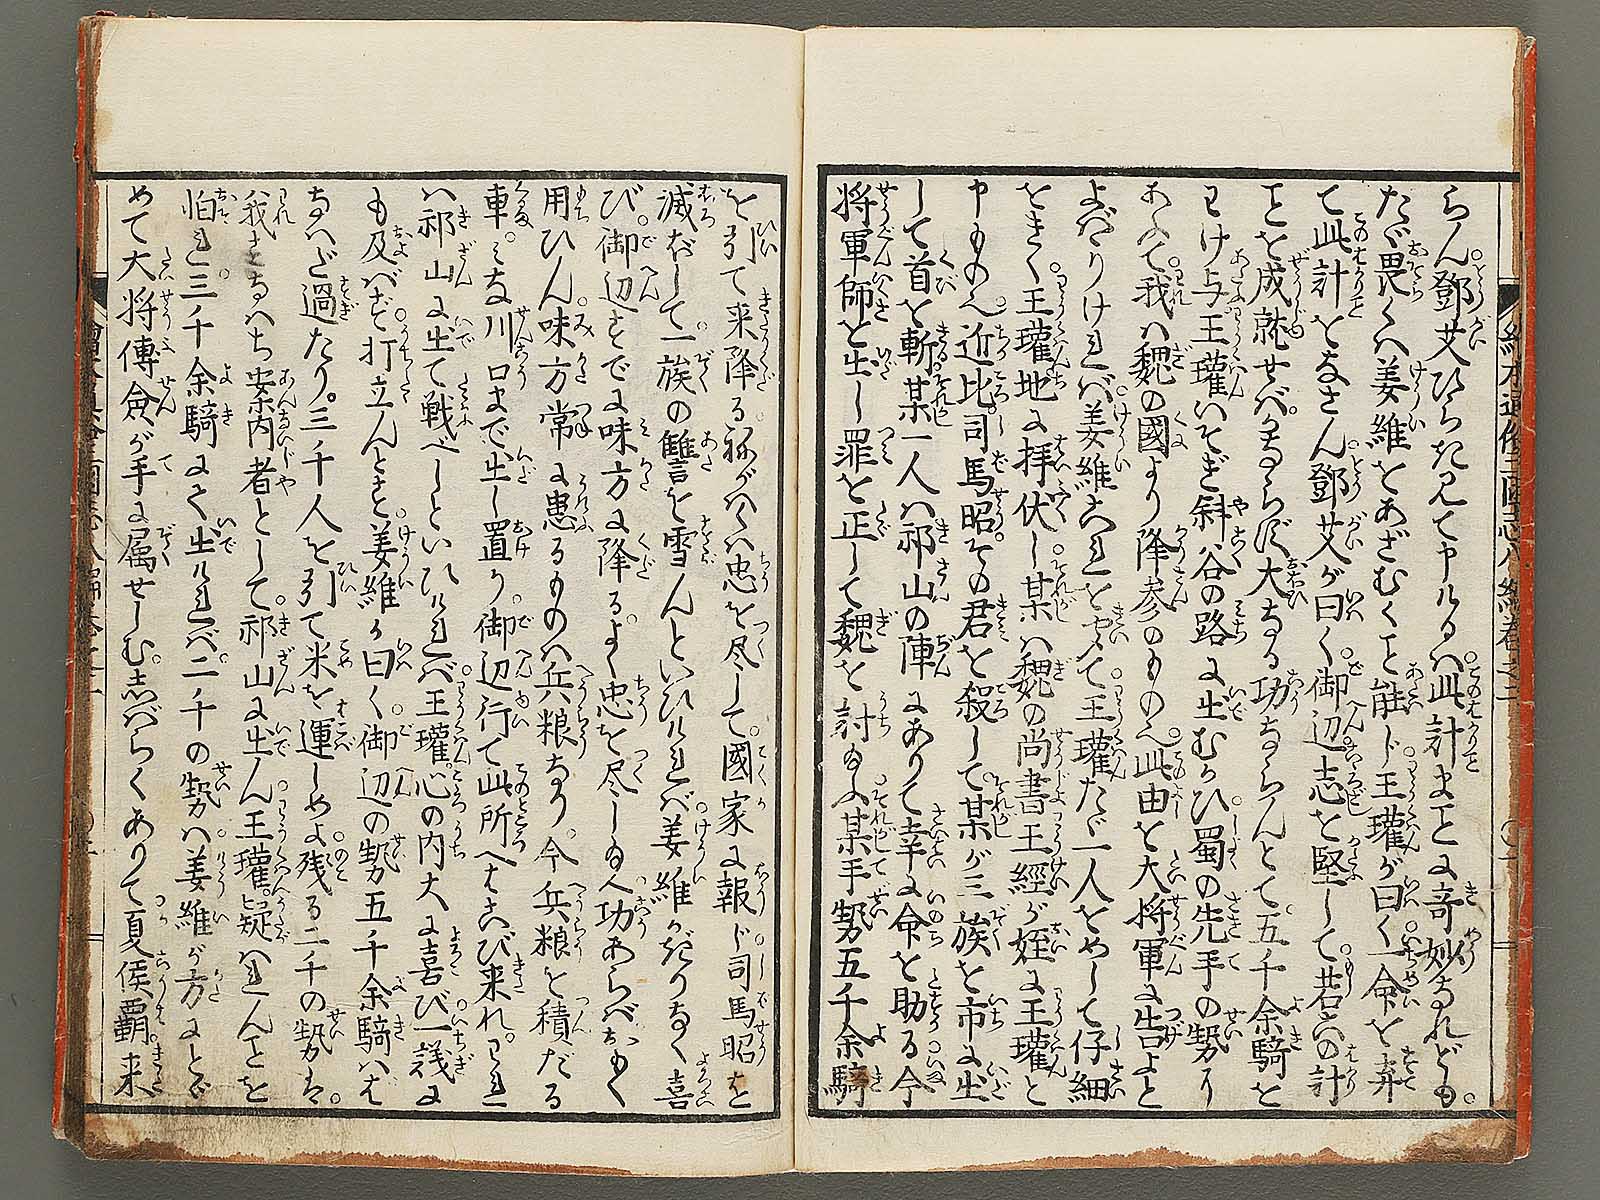 らん鄧艾ひらき見て申ルるハ此計まことに奇妙なれども。
たゞ畏くハ姜維をあざむくこと能じ王瓘が曰く一命を弃
て此計をなさん鄧艾が曰く御辺志を堅して若此計
ことを成就せバかならず大なる功ならんとて五千余騎を
わけ与王瓘いそぎ斜谷の路に出むかひ蜀の先手の勢に
あふて我ハ魏の國より降参のものヘ此由を大将軍に告よと
よばゝりけれバ姜維これをきいて王瓘たゞ一人をめして仔細
をきく王瓘地に拝伏し某ハ魏の尚書王經が姪に王瓘と
申ものヘ近比司馬昭その君を殺して某が三族を市に出
して首を斬某一人ハ祁山の陣にありて幸に命を助る今
将軍師を出し罪を正して魏を討給ふ某手勢五千余騎
を引て来降る祢がハくハ忠を尽して。國家に報ひ司馬昭を
滅ぼして一族の讐を雪んといひけれバ姜維かぎりなく喜
び。御辺すでに味方に降るよく忠を尽し給へ功あらバおもく
用ひん味方常に患るものハ兵粮なり。今兵粮を積たる
車。みな川口まで出し置り。御辺行て此所へはこび来れ。われ
ハ祁山に出て戦べしといひけれバ王瓘心の内大に喜び一議に
も及ばず打立んとす姜維が曰く御辺の勢五千余騎はな
なハだ過たり。三千人を引て米を運しめよ残る二千の勢は。
我すなハち案内者として。祁山に出ん王瓘疑はれんことを
怕れ三千余騎にて出けれバ二千の勢ハ姜維が方にとゞ
めて大将傅僉が手に属せしむ。志ばらくありて夏侯覇来